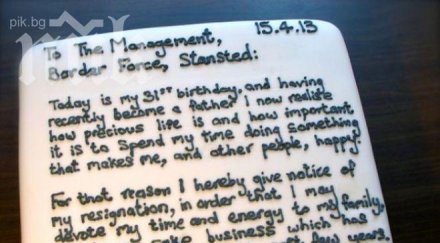 pik.bg
15.4.13
To The Management,
Border Force, Stansted:
Today is my 31st birthday, and having
recently become a father I now realise
how precious life is and how important
it is to spend my time doing something
that makes me, and other people, happy.
For that reason I hereby give notice of
my resignation, in order that I may
devote my time and energy to my family,
cake business which has
years.